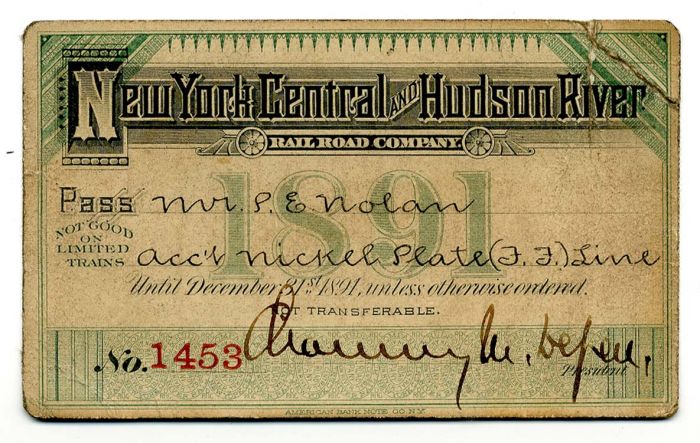 New York Central and Hudson River
RAIL ROAD COMPANY.
1891
Pass Mr. P. E. Nolan
NOT GOOD
ON
LIMITED
TRAINS
Acc't Nickel Plate (F. F.) Line
Until December 31st 1891, unless otherwise ordered.
NOT TRANSFERABLE.
No. 1453 Chauncey M. Depew.
President
AMERICAN BANK NOTE CO. N.Y.